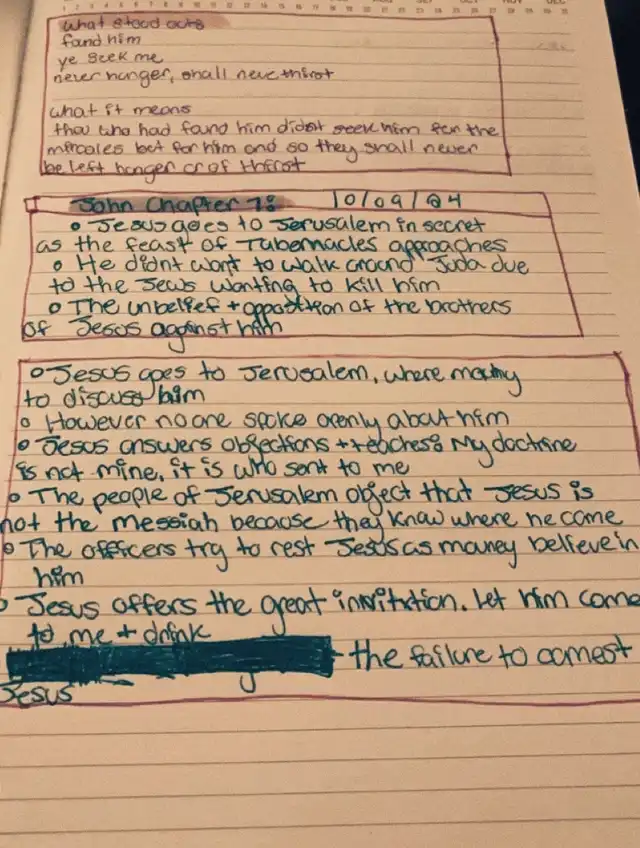 what stood outs
found him
ye seek me
never hunger, shall neve thirst
what it means
thou who had found him didnt seek him for the
miracles bet for him and so they shall never
be left hunger or of thirst
John Chapter 7:
10/09/24
Jesus goes to Jerusalem in secret
as the feast of Tabernacles approaches
He didnt want to walk around Juda due
to the Jews wanting to kill him
The unbelief + opposition of the brothers
of Jesus against him
Jesus goes to Jerusalem, where
to discuss him
However no one spoke openly about him
Jesus answers objections + teaches: My doctrine
is not mine, it is who sent to me
The people of Jerusalem object that Jesus is
not the messiah because they know where he come
The officers try to rest Jesus as believe in
him
Jesus offers the great invitation. Let him come
to me + drink
- the failure to
Jesus